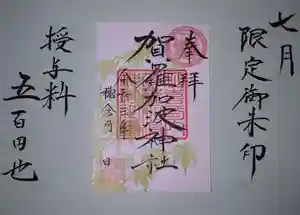 七月
限定御朱印
奉拝
賀羅加波神社
授与料
五百円也